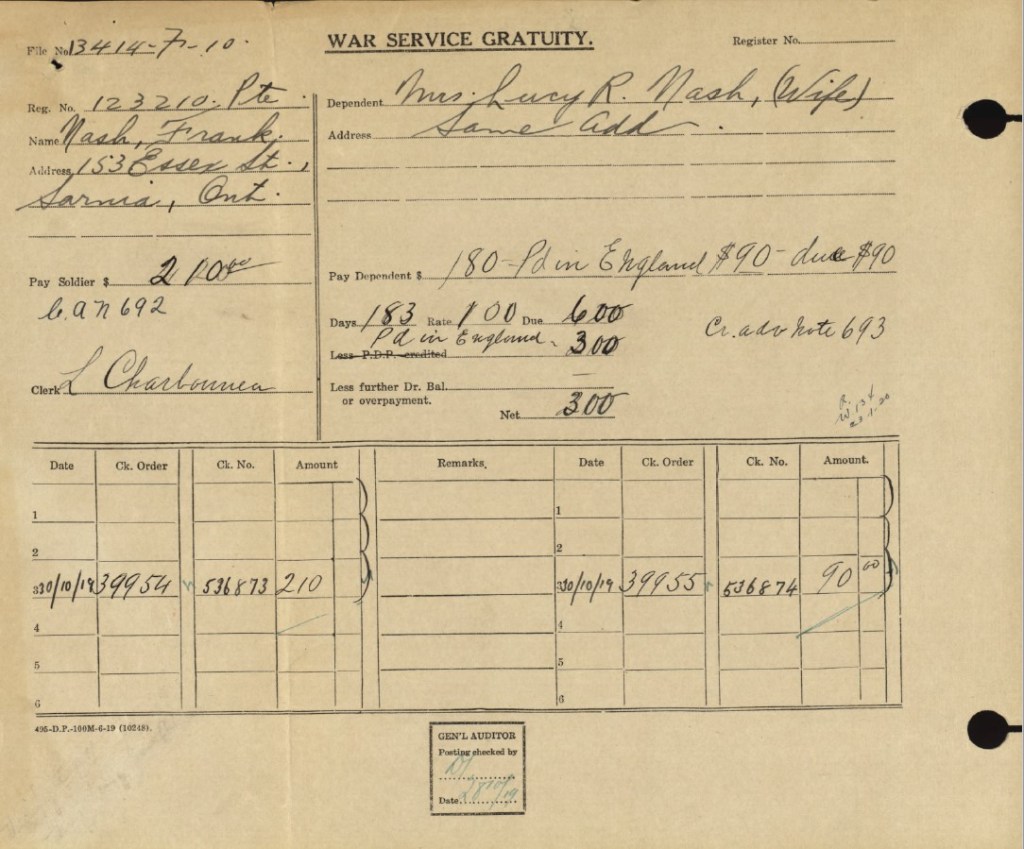 File No. 13414-F-10.
WAR SERVICE GRATUITY.
Register No.
Reg. No. 123210. Pte.
Name Nash, Frank.
Address 153 Essex St.,
Sarnia, Ont.
Dependent Mrs. Lucy R. Nash, (Wife)
Address Same add.
Pay Soldier $ 210.00
C.A.N 692
Clerk L Charbonneau
Pay Dependent $ 180 - Pd in England $90 - due $90
Days 183 Rate 100 Due 600
Pd in England - 300
Less P.D.P. credited
Cr. adv Note 693
Less further Dr. Bal.
or overpayment.
Net 300
W.134
Date Ck. Order Ck. No. Amount Remarks. Date Ck. Order Ck. No. Amount.
1 1
2 2
3 30/10/19 39954 536873 210 3 30/10/19 39955 536874 90 00
4 4
5 5
6 6
495-D.P.-100M-6-19 (10248).
GEN'L AUDITOR
Posting checked by
Date 28/10/19